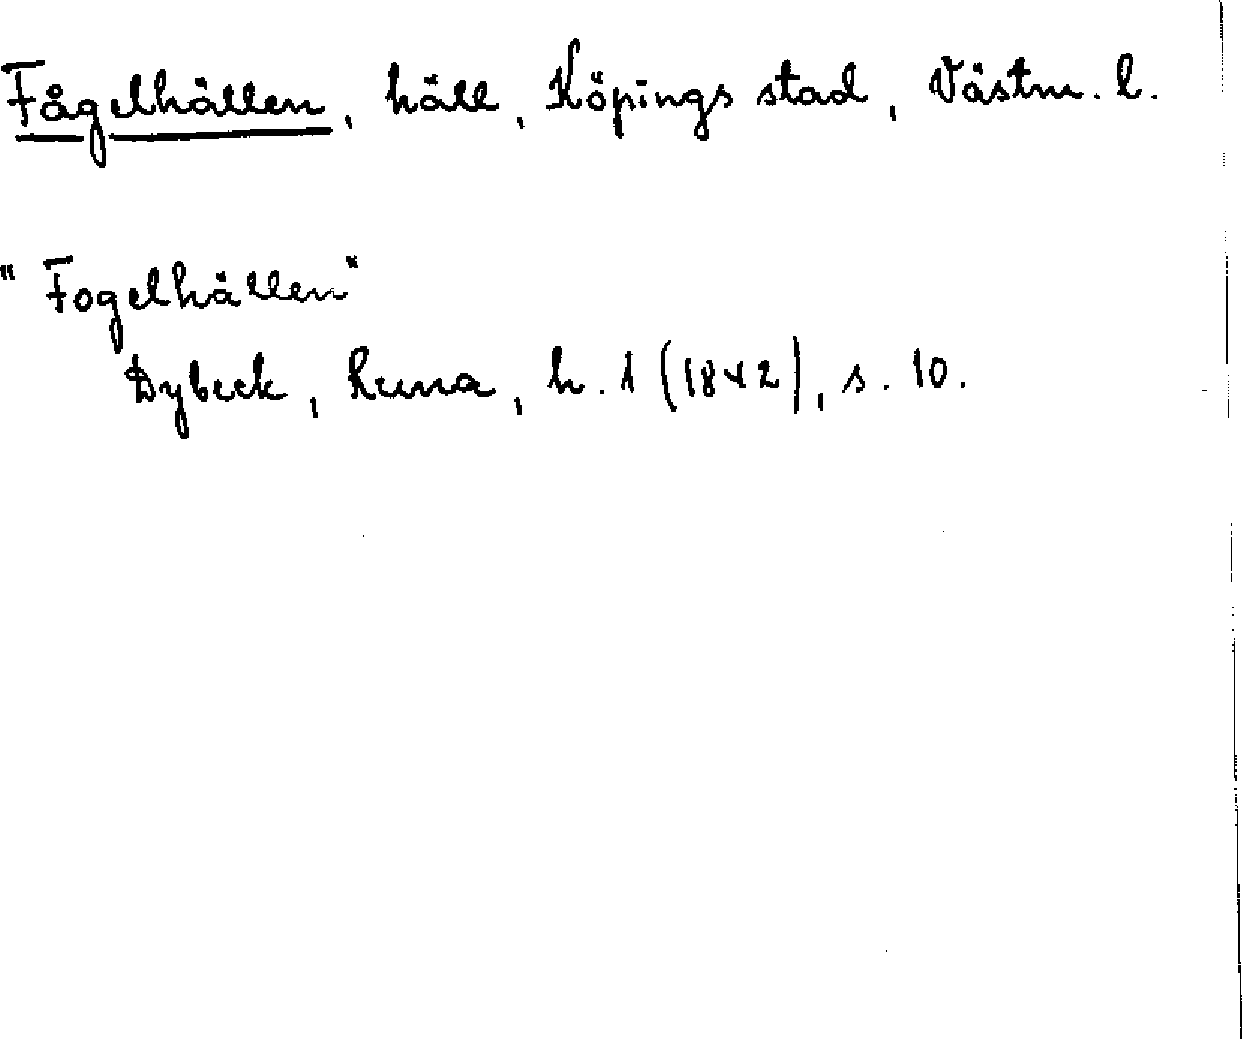 Fågelhällen, häll, Köpings stad, Västm. l.
"Fogelhällen"
Dybeck, Runa, h. 1 (1842), s. 10.